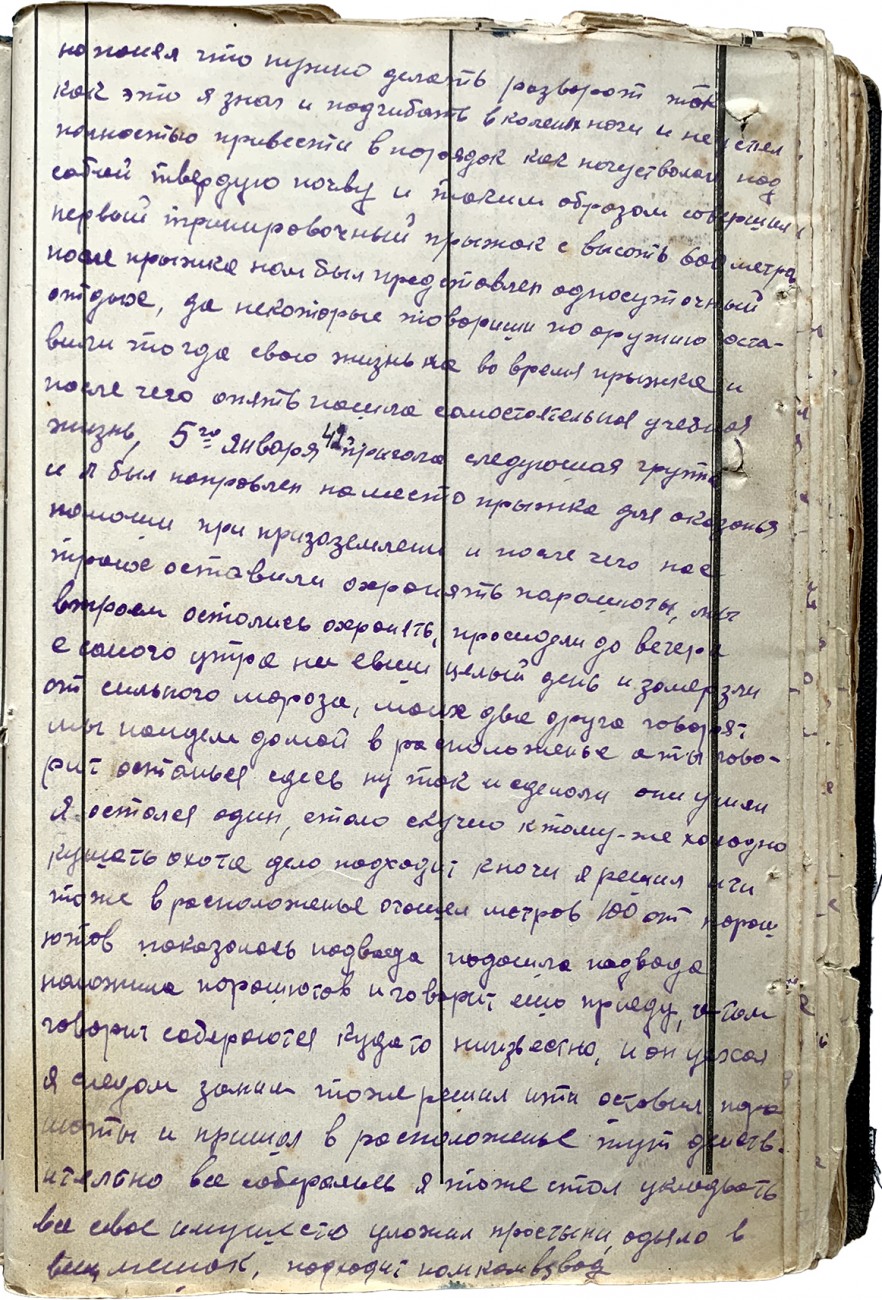 наткнея что нужно делать разворот так
как это я знал и подгибать в коленях ночи и не успел
полностью привести в порядок как почуствовал под
собой твердую почву и таким образом совершил
первый тринировочный прыжок с высоты 600 метра
после прыжка нам был представлен односуточный
отдых, да некоторые товарищи по оружию оста-
вили тогда свою жизнь на во время прыжка и
после чего опять пошла самостоятельная учебная
жизнь, 5го января 42г пригола следующая группа
и я был направлен на место прыжка для оказанья
помощи при призоземлени и после чего нас
троих оставили охронять парошюты, мы
втроем остолись охронять, просидели до вечера
с самого утра не евши целый день и замерзли
от сильного мороза, моих два друга говорят
мы пойдем домой в расположенье а ты гово-
рит останься сдесь ну так и сделоли они ушли
Я остолся один, стало скучно к тому-же холодно
кушать охота дело подходит к ночи я решил ити
тоже в расположенье отошел метров 100 от парош
ютов показолось подвода подошла подвода
положила порошютов и говорит ешо приеду, а там
говорит собераются куда то ниизвестно, и он уехал
я следом заним тоже решил ити оставил пара
шюты и пришол в расположенье тут действ-
ительно все соберались я тоже стал укладвать
все свое имушество уложил простыни, одыло в
вещ мешок, подходит помкомвзвод